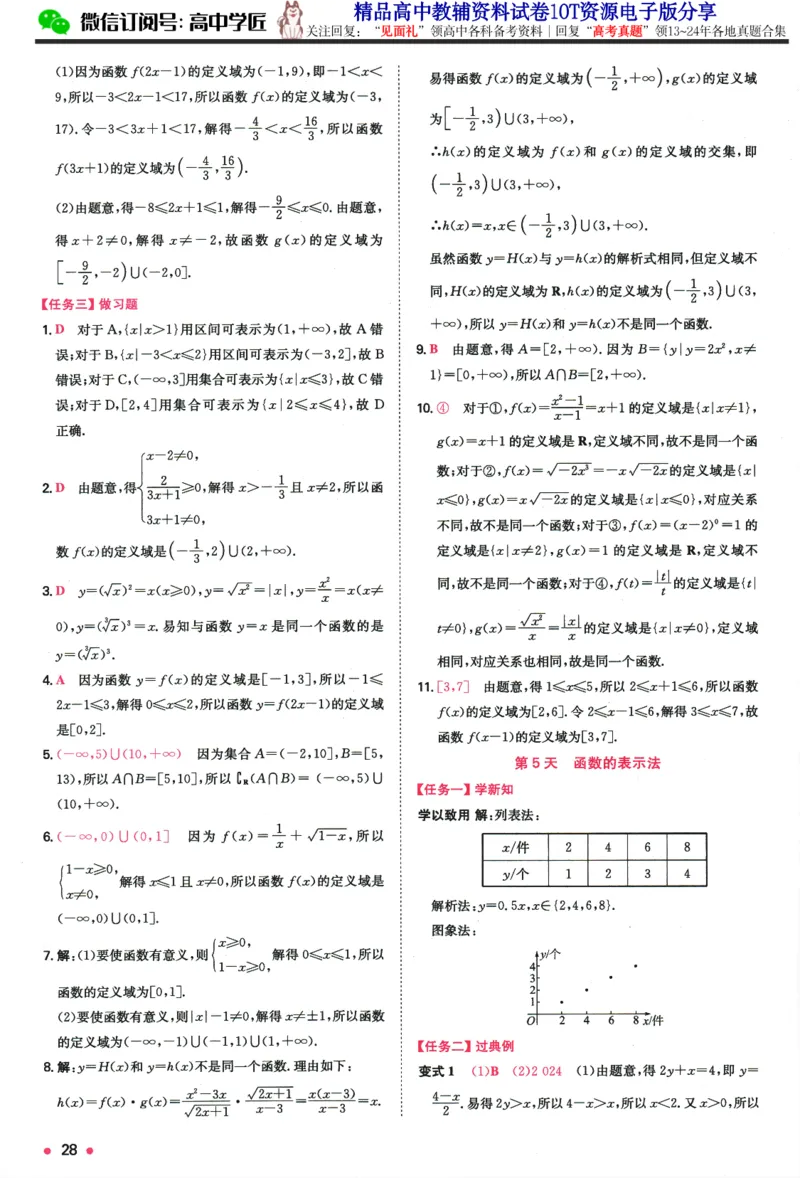 微信订阅号: 高中学匠
精品高中教辅资料试卷1OT资源电子版分享
关注回复： “见面礼”领高中各科备考资料 | 回复 “高考真题”领13~24年各地真题合集
(1)因为函数 f(2x−1)的定义域为(−1,9),即−1<x<
9,所以−3<2x−1<17,所以函数 f(x)的定义域为(−3,
17).令−3<3x+1<17,解得−4/3<x<16/3,所以函数
f(3x+1)的定义域为(−4/3,16/3).
(2)由题意,得−8≤2x+1≤1,解得−9/2≤x≤0.由题意,
得 x+2≠0,解得 x≠−2,故函数 g(x)的定义域为
[−9/2,−2)∪(−2,0].
【任务三】做习题
1.D 对于 A,{x|x>1}用区间可表示为(1,+∞),故 A 错
误;对于 B,{x|−3<x≤2}用区间可表示为(−3,2],故 B
错误;对于 C,(−∞,3]用集合可表示为{x|x≤3},故 C 错
误;对于 D,[2,4]用集合可表示为{x|2≤x≤4},故 D
正确.
2.D 由题意,得{x−2≠0, 2/(3x+1)≥0, 3x+1≠0, 解得 x>−1/3且 x≠2,所以函
数 f(x)的定义域是(−1/3,2)∪(2,+∞).
3.D y=(√x)²=x(x≥0),y=√x²=|x|,y=x²/x=x(x≠
0),y=(∛x)³=x.易知与函数 y=x 是同一个函数的是
y=(∛x)³.
4.A 因为函数 y=f(x)的定义域是[−1,3],所以−1≤
2x−1≤3,解得0≤x≤2,所以函数 y=f(2x−1)的定义域
是[0,2].
5.(−∞,5)∪(10,+∞) 因为集合 A=(−2,10],B=[5,
13),所以 A∩B=[5,10],所以 ∁R(A∩B)= (−∞,5)∪
(10,+∞).
6.(−∞,0)∪(0,1] 因为 f(x)=1/x+√(1−x),所以
{1−x≥0, x≠0, 解得 x≤1 且 x≠0,所以函数 f(x)的定义域是
(−∞,0)∪(0,1].
7.解:(1)要使函数有意义,则{x≥0, 1−x≥0, 解得 0≤x≤1,所以
函数的定义域为[0,1].
(2)要使函数有意义,则|x|−1≠0,解得 x≠±1,所以函数
的定义域为(−∞,−1)∪(−1,1)∪(1,+∞).
8.解:y=H(x)和 y=h(x)不是同一个函数.理由如下:
h(x)=f(x)·g(x)=(x²−3x)/√(2x+1)·√(2x+1)/(x−3)=x(x−3)/(x−3)=x.
易得函数 f(x)的定义域为(−1/2,+∞),g(x)的定义域
为[−1/2,3)∪(3,+∞),
∴h(x)的定义域为 f(x)和 g(x)的定义域的交集,即
(−1/2,3)∪(3,+∞),
∴h(x)=x,x∈(−1/2,3)∪(3,+∞).
虽然函数 y=H(x)与 y=h(x)的解析式相同,但定义域不
同,H(x)的定义域为 R,h(x)的定义域为(−1/2,3)∪(3,
+∞),所以 y=H(x)和 y=h(x)不是同一个函数.
9.B 由题意,得 A=[2,+∞).因为 B={y|y=2x²,x≠
1}=[0,+∞),所以 A∩B=[2,+∞).
10.④ 对于①,f(x)=(x²−1)/(x−1)=x+1 的定义域是{x|x≠1},
g(x)=x+1 的定义域是 R,定义域不同,故不是同一个函
数;对于②,f(x)=√(−2x³)=−x√(−2x)的定义域是{x|
x≤0},g(x)=x√(−2x)的定义域是{x|x≤0},对应关系
不同,故不是同一个函数;对于③,f(x)=(x−2)⁰=1 的
定义域是{x|x≠2},g(x)=1 的定义域是 R,定义域不
同,故不是同一个函数;对于④,f(t)=|t|/t的定义域是{t|
t≠0},g(x)=√x²/x=|x|/x的定义域是{x|x≠0},定义域
相同,对应关系也相同,故是同一个函数.
11.[3,7] 由题意,得 1≤x≤5,所以 2≤x+1≤6,所以函数
f(x)的定义域为[2,6].令 2≤x−1≤6,解得 3≤x≤7,故
函数 f(x−1)的定义域为[3,7].
第 5 天 函数的表示法
【任务一】学新知
学以致用 解:列表法:
x/件 2 4 6 8
y/个 1 2 3 4
解析法:y=0.5x,x∈{2,4,6,8}.
图象法:
y/个
4
3
2
1
O 2 4 6 8 x/件
【任务二】过典例
变式 1 (1)B (2)2 024 (1)由题意,得 2y+x=4,即 y=
(4−x)/2.易得 2y>x,所以 4−x>x,所以 x<2.又 x>0,所以
28